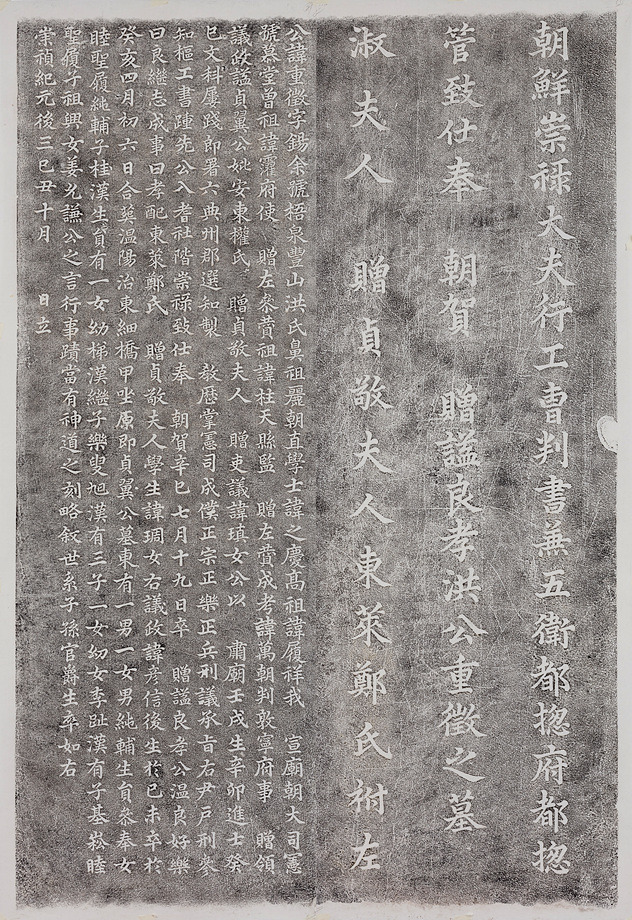 朝鮮崇祿大夫行工曹判書兼五衛都摠府都摠
管致仕奉 朝賀 贈謚良孝洪公重徵之墓
淑夫人 贈貞敬夫人東萊鄭氏祔左
公諱重徵字錫余號梧泉豐山洪氏鼻祖麗朝直學士諱之慶高祖諱履祥我 宣廟朝大司憲
號慕堂曾祖諱霶府使 贈左參贊祖諱柱天縣監 贈左贊成考諱萬朝判敦寧府事 贈領
議政謚貞翼公妣安東權氏 贈貞敬夫人 贈吏議諱瑱女公以 肅廟壬戌生辛卯進士癸
巳文科屢踐郎署六典州郡選知製 敎歷掌憲司成僕正宗正樂正兵刑議承旨右尹戶刑參
知樞工書踵先公入耆社階崇祿致仕奉 朝賀辛巳七月十九日卒 贈謚良孝公溫良好樂
曰良繼志成事曰孝配東萊鄭氏 贈貞敬夫人學生諱琱女右議政諱彥信後生於己未卒於
癸亥四月初六日合葬溫陽治東細橋甲坐原即貞翼公墓東有一男一女男純輔生員參奉女
睦聖履純輔子桂漢生員有一女幼悌漢繼子樂叟旭漢有三子一女幼女李趾漢有子基崧睦
聖履子祖興女姜允謙公之言行事蹟當有神道之刻略敘世系子孫官爵生卒如右
崇禎紀元後三己丑十月 日立